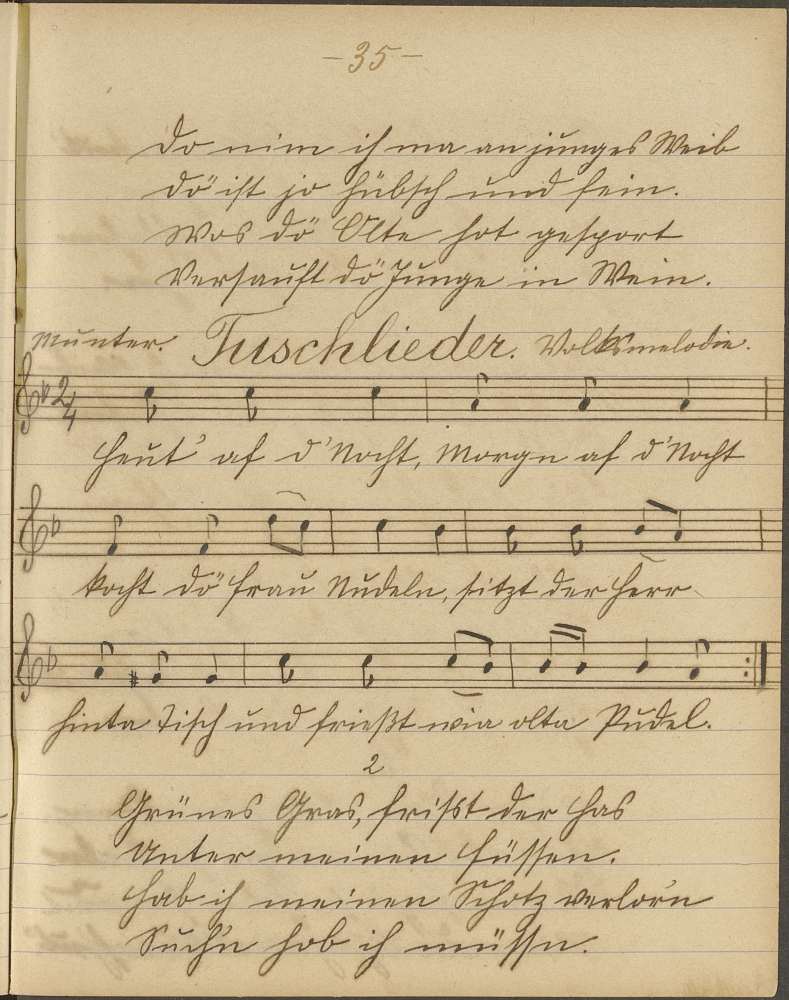 -35-
Do nim ih ma an junges Weib
Dö ist jo hübsch und fein.
Wos dö Olte hot gesport
Versauft dö Junge in Wein.
Munter. Tuschlieder. Volksmelodie.
2/4
Heut' af d'Nocht, Morgn af d'Nocht
kocht dö Frau Nudeln, sitzt der Herr
hinta Tisch und frießt wia olta Pudel.
2
Grünes Gras, frißt der Has
Unter meinen Füssen.
Hab ih meinen Schotz verlor'n
Such'n hob ih müssn.